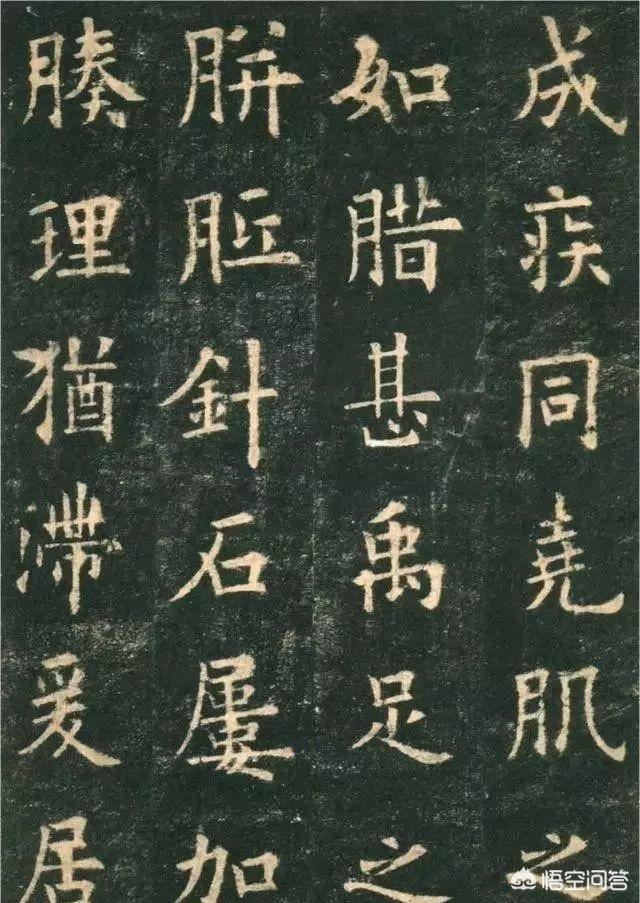 成疾同堯肌之
如腊甚禹足之
胼胝針石屢加
腠理猶滯爰居
悟空问答